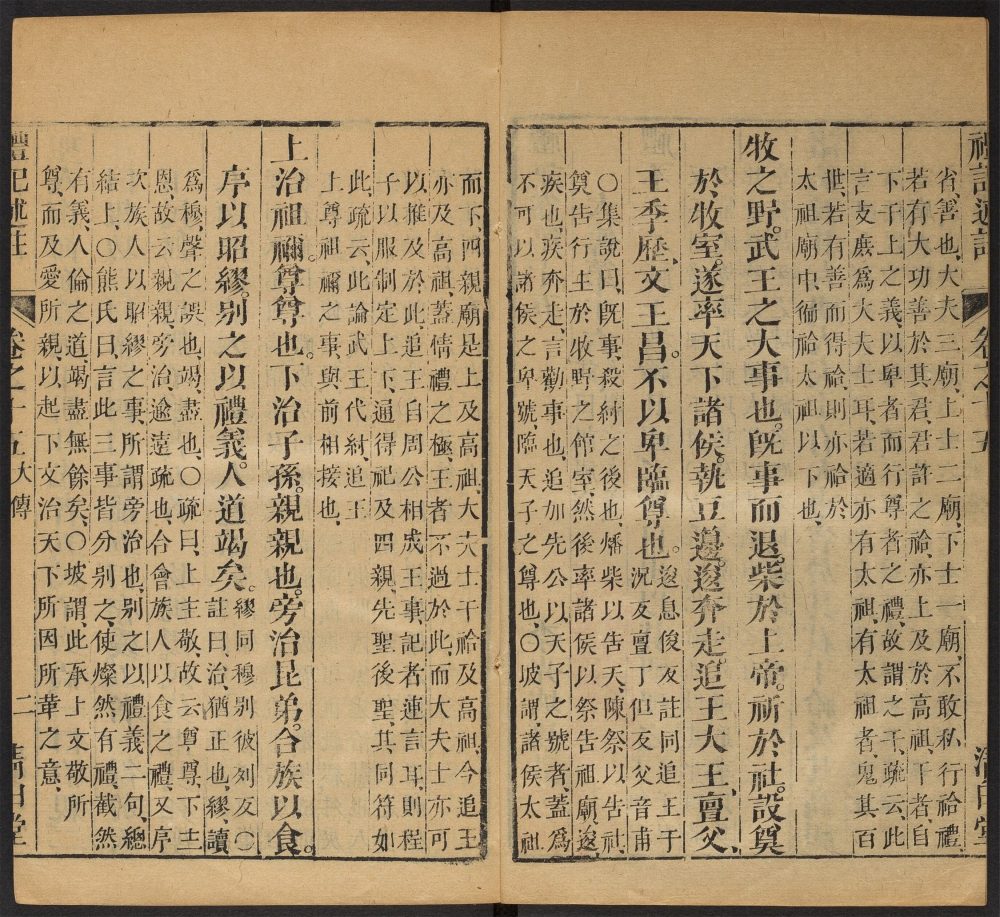 禮記述註 卷之十五 清白堂
省善也、大夫三廟、上士二廟、下士一廟、不敢私行祫禮、
若有大功善於其君、君許之祫、亦上及於高祖、干者、自
下干上之義、以卑者而行尊者之禮、故謂之干、疏云、此
言支庶爲大夫士耳、若適亦有太祖、有太祖者、鬼其百
世、若有善而得祫、則亦祫於
太祖廟中、徧祫太祖以下也、
牧之野。武王之大事也。旣事而退。柴於上帝。祈於社。設奠
於牧室。遂率天下諸侯。執豆籩。逡奔走。追王大王亶父、
王季歷、文王昌。不以卑臨尊也。逡息俊反註同追王于
況反亶丁但反父音甫
○集說曰、旣事、殺紂之後也、燔柴以吿天、陳祭以吿社、
奠吿行主於牧野之館室、然後率諸侯以祭吿祖廟、逡、
疾也、疾奔走、言勸事也、追加先公以天子之號者、蓋爲
不可以諸侯之卑號、臨天子之尊也、○坡謂、諸侯太祖
而下、四親廟是上及高祖、大夫士干祫及高祖、今追王
亦及高祖、蓋情禮之極、王者不過於此、而大夫士亦可
以推及於此、追王自周公相成王事、記者連言耳、則程
子以服制定上下、通得祀及四親、先聖後聖其同符如
此、疏云、此論武王代紂、追王
上尊祖禰之事、與前相接也、
上治祖禰。尊尊也。下治子孫。親親也。旁治昆弟。合族以食。
序以昭繆。別之以禮義。人道竭矣。繆同穆別彼列反○
註曰、治、猶正也、繆、讀
爲穆、聲之誤也、竭、盡也、○疏曰、上主敬、故云尊尊、下主
恩、故云親親、旁治逾遠疏也、合會族人以食之禮、又序
次族人以昭繆之事、所謂旁治也、別之以禮義二句、總
結上、○熊氏曰、言此三事皆分別之、使燦然有禮、截然
有義、人倫之道、竭盡無餘矣、○坡謂此承上文敬所
尊、而及愛所親、以起下文治天下所因所革之意、
禮記述註 卷之十五大傳 二 清白堂